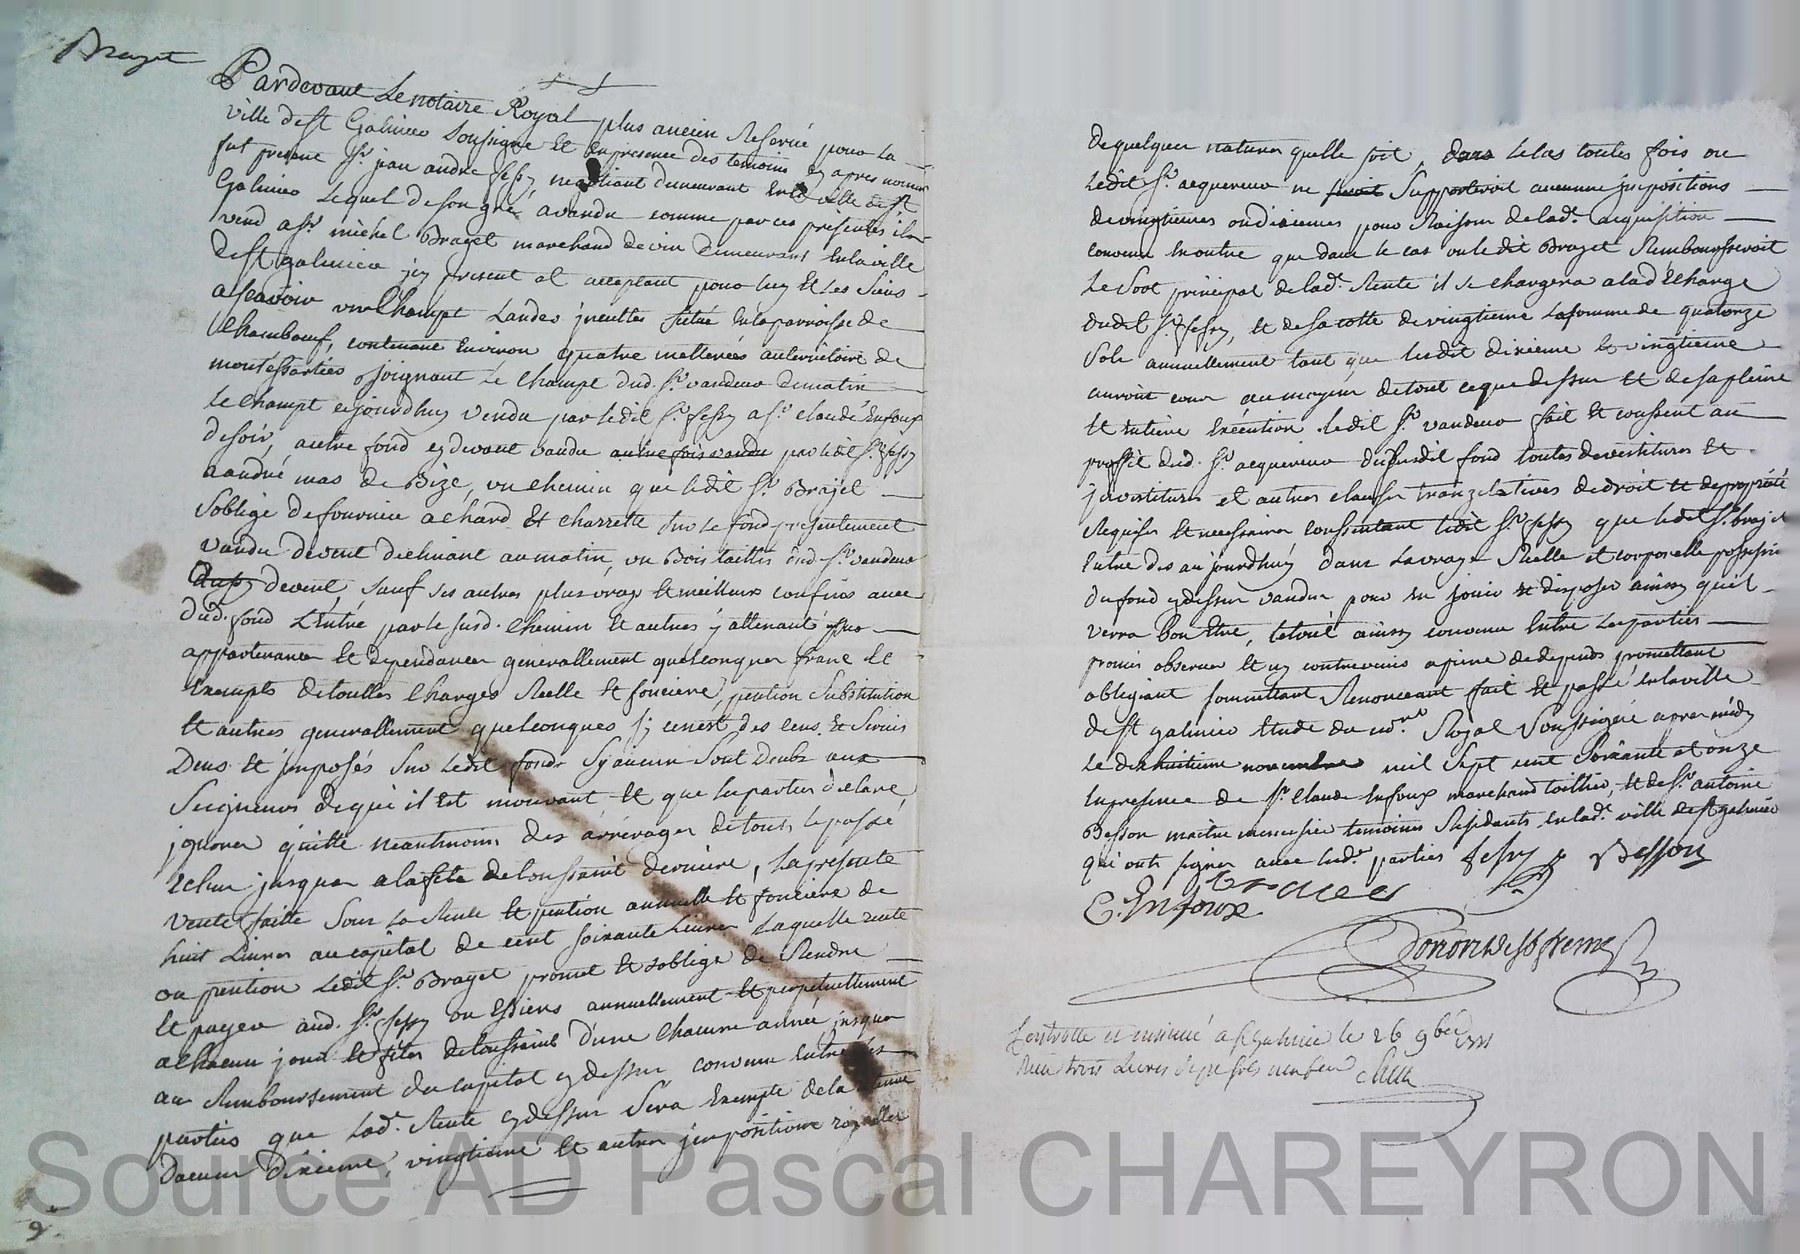 Brazet
Pardevant Le notaire Royal plus ancien Reservé pour La
ville de st Galmier soussigné et en presence des temoins cy apres nommés
fut present sr. jean andré fessy, negotiant demeurant en la ville de st
Galmier Lequel de son gré a vandu comme par ces présentes il
vend a sr. michel Brazet marchand de vin demeurant en la ville
de st galmier icy present et acceptant pour luy et Les Siens
a scavoir un champt Landes incultes situé en la parroisse de
Chambœuf, contenant Environ quatre metterées au territoire de
joignant Le champt dud. sr. vandeur de matin
Le champt ajourdhuy vendu par ledit sr. fessy a sr. claude Enfoux
de soir, autre fond cy devant vandu autre fois vandu par ledit sr. fessy
a andré mas de Bize, un chemin que ledit sr. Brazet
S'oblige de fournire a chard Et charrette sur Le fond presentement
vandu de vent declinant au matin, un Bois taillis dud sr. vandeur
de vent, sauf ses autres plus vrays Et meilleurs confins avec
dud. fond L'entré par le susd. chemin Et autres y attenant
appartenances Et dependances generallement quelconques franc Et
Exempts de touttes charges Reelle Et fonciere, pention Substitution
Et autres generallement quelconques sy cenest des cens Et Servis
Deus Et imposés Sur Ledit fonds Sy aucun Sont Deubs aux
Seigneurs de qui il Est mouvant Et que les parties declare
ignorer quitte neantmoins des arrérages de tout le passé
Echus jusques a la fête de toussaint derniere, La presente
vente faitte sous La Rente Et pention annuelle Et fonciere de
huit Livres au capital de cent soixante Livres Laquelle rente
ou pention Ledit Sr. Brazet promet Et s'oblige de Rendre
Et payer aud. Sr. fessy ou Essiens annuellement Et perpetuellement
a chacun jour Et fêtes de toussaint d'une chacune année jusques
au Remboursement du capital cy dessus convenu Entre les
parties que Lad. Rente cy dessus Sera Exempte de la Retenue
d'aucun dixieme, vingtieme Et autres impositions royalles
de quelques natures quelle soit, dans le cas toutes fois ou
Ledit Sr. acquereur ne Supporteroit aucunne impositions
de vingtiemes ou dixiemes pour Raison de lad. acquisition
convenu En outre que dans le cas ou ledit Brazet Rembourseroit
Le Sort principal de lad. Rente il se chargera a lad Echange
dudit Sr. fessy, et de sa cotte de vingtieme La somme de quatorze
Sols annuellement tant que lesdit dixieme Et vingtieme
auront cour au moyen de tout ce que dessus Et de sa pleine
Et Entiere Exécution. Ledit Sr. vandeur fait Et consent au
proffit dud. Sr. acquereur du susdit fond toutes devestitures Et
jnvestitures et autres clauses translatives de droit et de propriété
Requises Et necessaires consentant ledit Sr. fessy que ledit Sr. brazet
Entre des aujourdhuy dans La vraye Reelle et corporelle possession
du fond cy dessus vandu pour En jouir Et disposer ainsy quil
verra Bon Etre, Le tout ainsy convenu Entre Les parties
promis observer Et ny contrevenir a peine de depends promettant
obligeant soumettant Renonceant fait Et passé En la ville
de st galmier Etude du not.re Royal Soussigné apres midy
Le dix huitieme novembre mil Sept cent Soixante et onze
En presence de sr. claude Enfoux marchand toillier, Et de sr. antoine
Besson maitre menuisier temoins Residants En lad. ville de st galmier
qui onts signés avec lesd. parties fessy Besson
C. Enfoux Brazet
Controllé et insinué a st Galmier le 26 9bre 1771
Reçu trois Livres